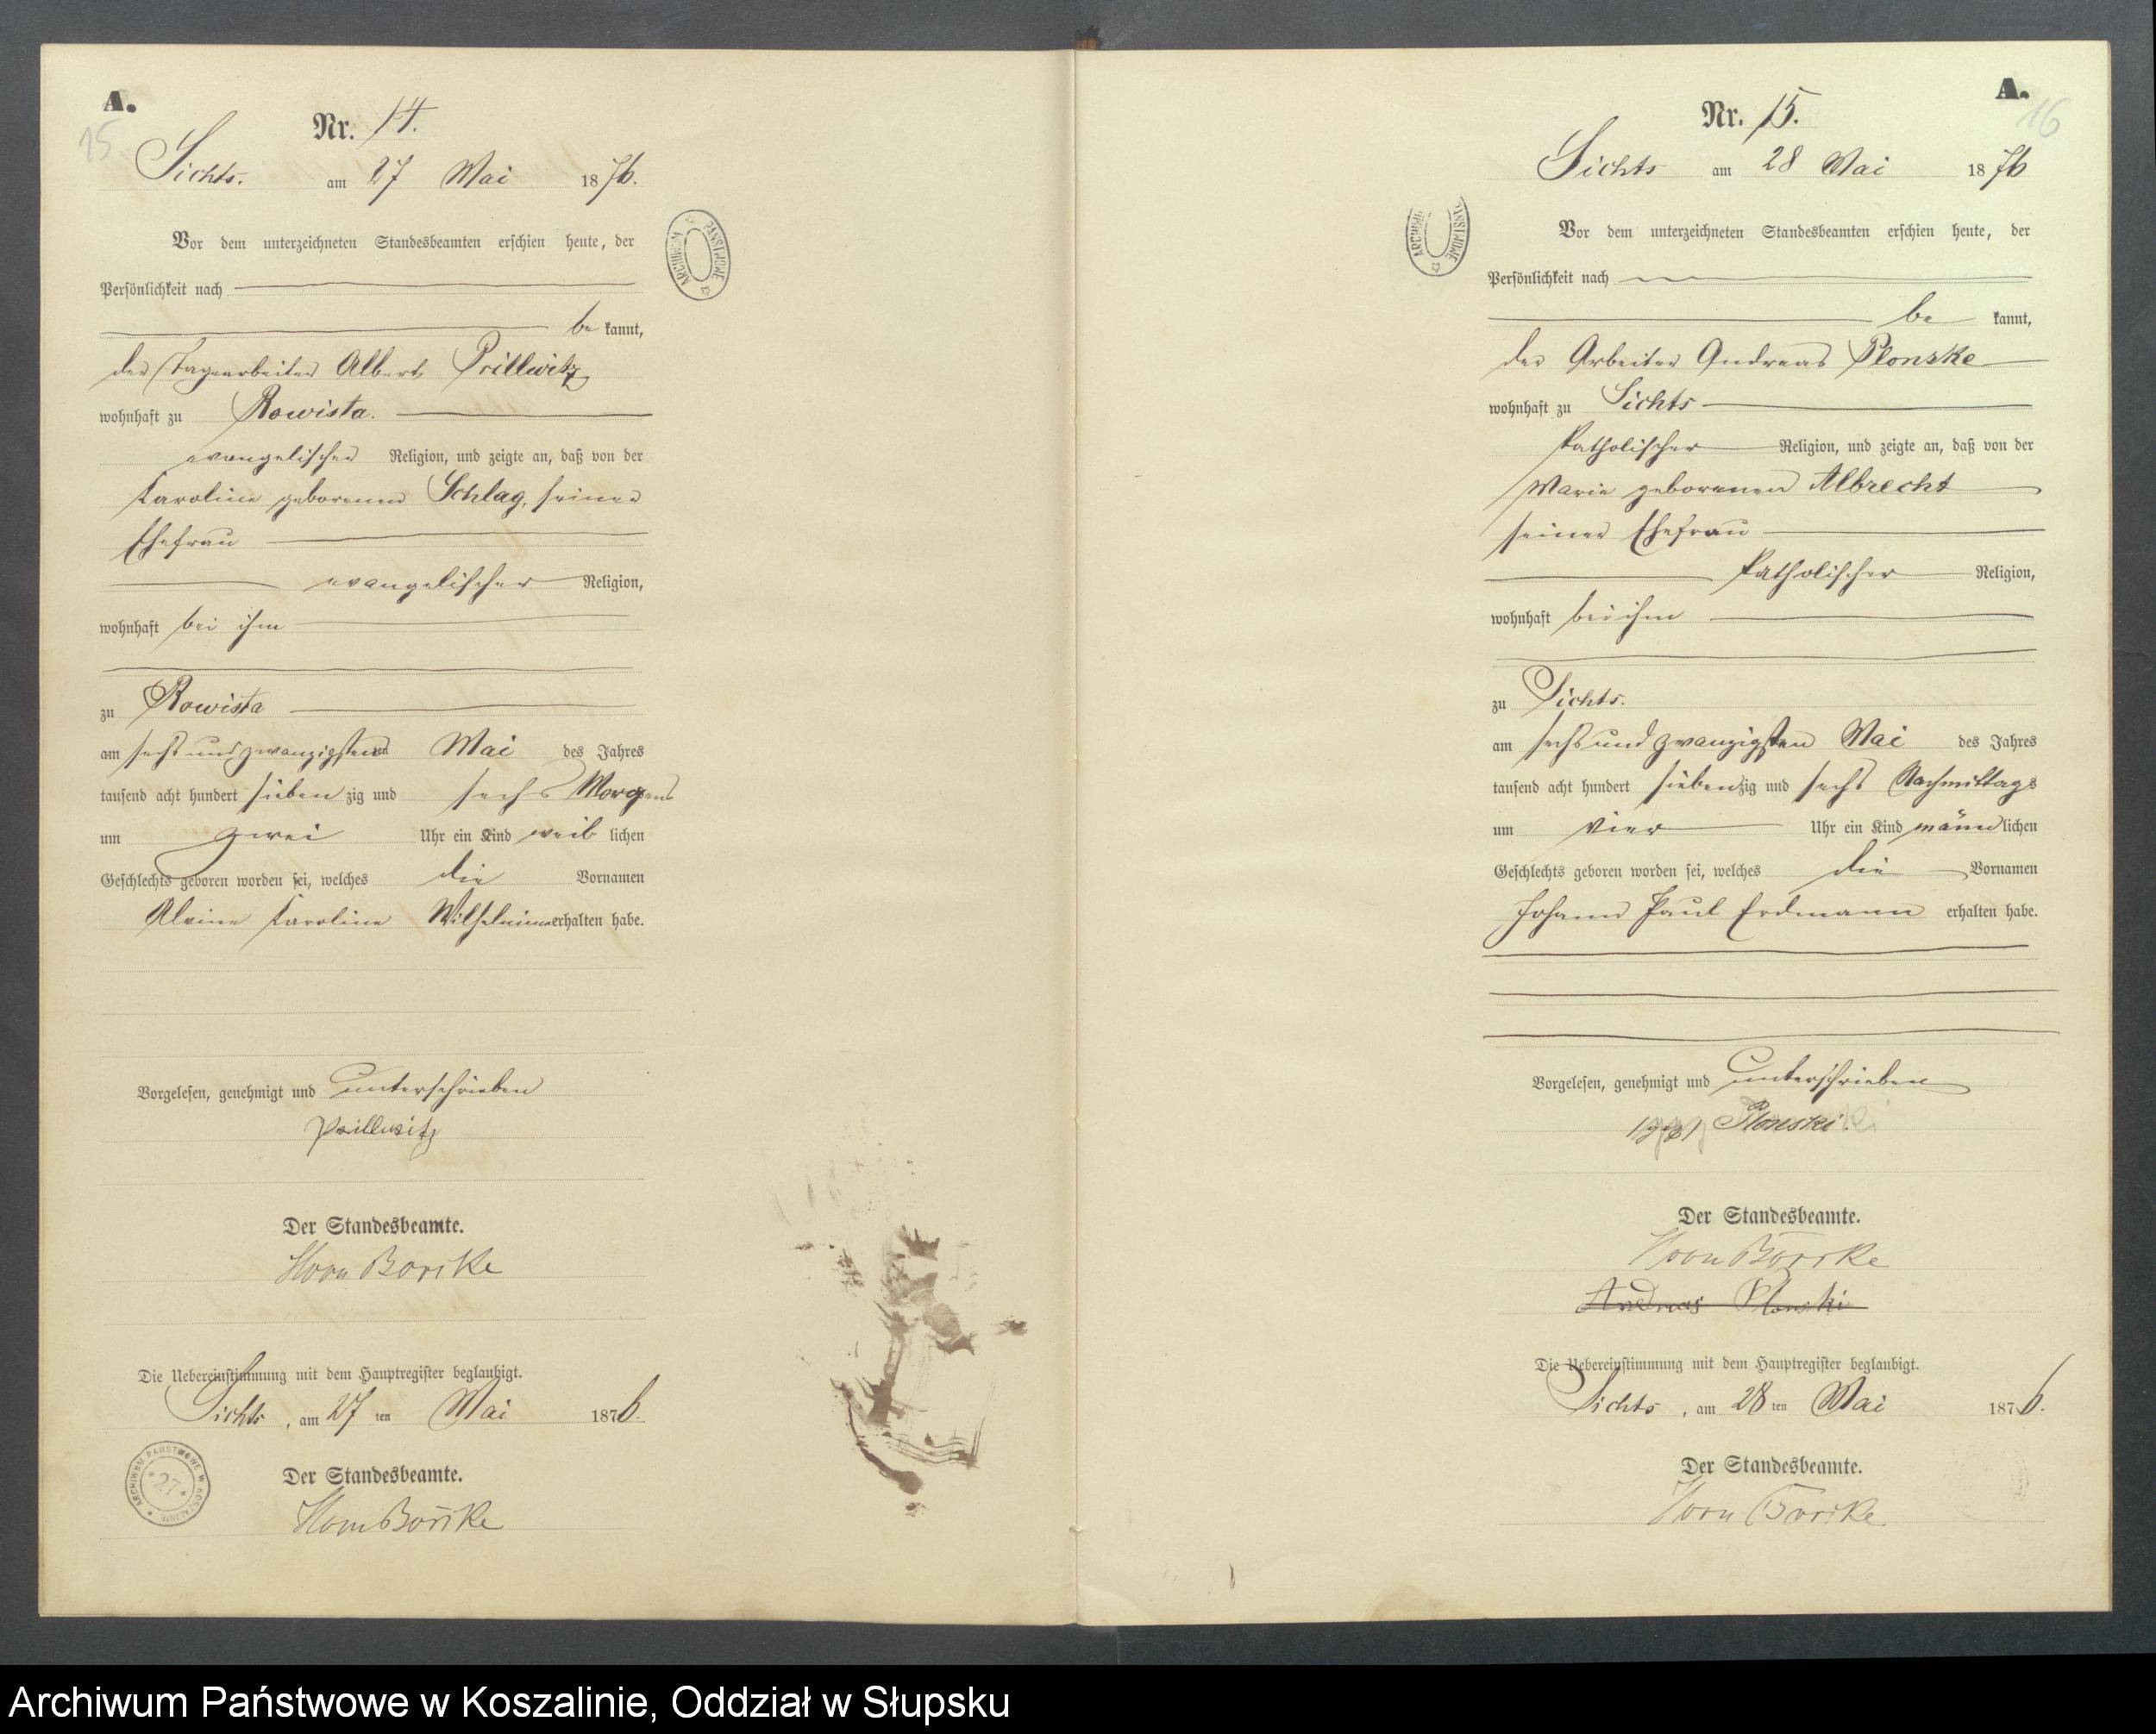 A.
15
Nr. 14.
Sichts. am 27 Mai 1876.
Vor dem unterzeichneten Standesbeamten erschien heute, der
Persönlichkeit nach
be kannt,
der Tagearbeiter Albert Prillwitz
wohnhaft zu Rowista.
evangelischer Religion, und zeigte an, daß von der
Karoline geborenen Schlag, seiner
Ehefrau
evangelischer Religion,
wohnhaft bei ihm
zu Rowista
am sechs und zwanzigsten Mai des Jahres
tausend acht hundert sieben zig und sechs Morgens
um zwei Uhr ein Kind weib lichen
Geschlechts geboren worden sei, welches die Vornamen
Alvine Karoline Wilhelmine erhalten habe.
Vorgelesen, genehmigt und unterschrieben
Prillwitz
Der Standesbeamte.
Die Uebereinstimmung mit dem Hauptregister beglaubigt.
Sichts, am 27 ten Mai 1876.
Der Standesbeamte.
ARCHIWUM PAŃSTWOWE
ARCHIWUM PAŃSTWOWE W KOSZALINIE
27
A.
16
Nr. 15.
Sichts am 28 Mai 1876
Vor dem unterzeichneten Standesbeamten erschien heute, der
Persönlichkeit nach
be kannt,
der Arbeiter Andreas Plonske
wohnhaft zu Sichts
katholischer Religion, und zeigte an, daß von der
Marie geborenen Albrecht
seiner Ehefrau
katholischer Religion,
wohnhaft bei ihm
zu Sichts.
am sechs und zwanzigsten Mai des Jahres
tausend acht hundert sieben zig und sechs Nachmittags
um vier Uhr ein Kind männ lichen
Geschlechts geboren worden sei, welches die Vornamen
Johann Paul Erdmann erhalten habe.
Vorgelesen, genehmigt und unterschrieben
Plonski.
Der Standesbeamte.
Andreas Plonski
Die Uebereinstimmung mit dem Hauptregister beglaubigt.
Sichts, am 28 ten Mai 1876.
Der Standesbeamte.
ARCHIWUM PAŃSTWOWE
Archiwum Państwowe w Koszalinie, Oddział w Słupsku